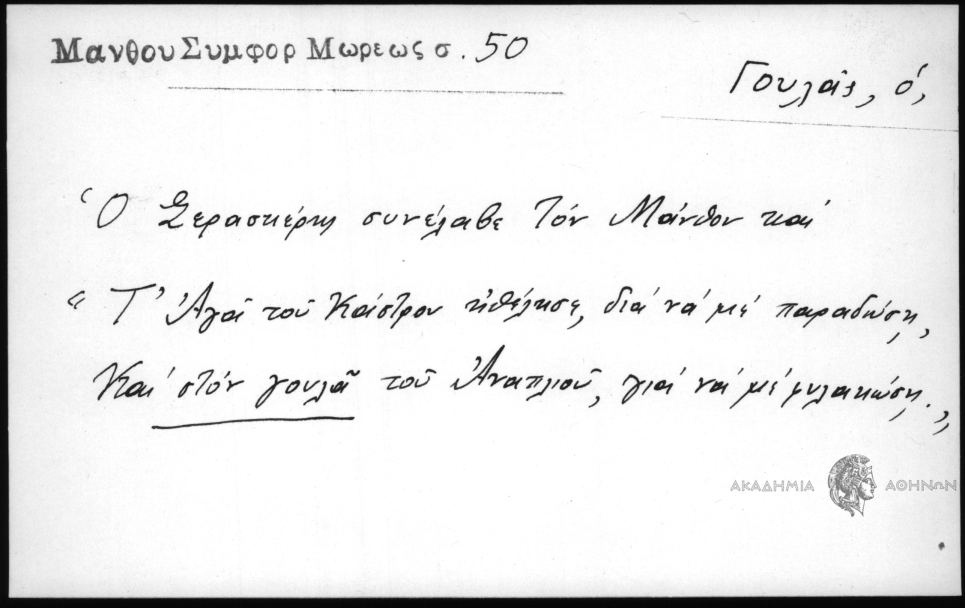 Μανθου Συμφορ Μωρεως σ. 50
Γουλᾶς, ὁ,
Ὁ Σερασκέρης συνέλαβε τόν Μάνθον καί
“Τ' Ἀγᾶ τοῦ Κάστρου ἠθέλησε, διά νά μέ παραδώσῃ,
Καί στόν γουλᾶ τοῦ Ἀναπλιοῦ, γιά νά μέ φυλακώσῃ.„
ΑΚΑΔΗΜΙΑ ΑΘΗΝΩΝ